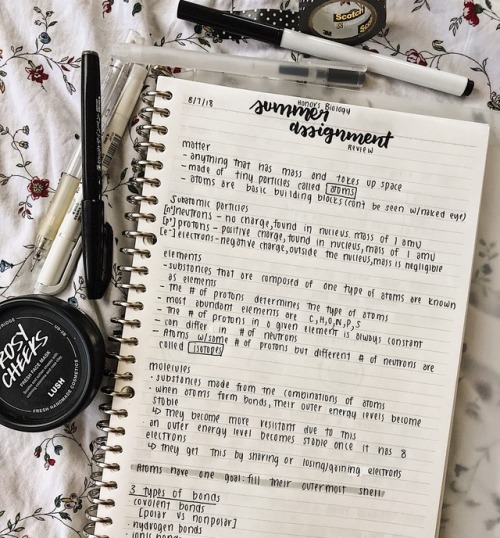 Scotch
8/7/18
Honors Biology
summer
assignment
REVIEW
matter
- anything that has mass and takes up space
- made of tiny particles called atoms
- atoms are basic building blocks (can't be seen w/naked eye)
Subatomic particles
[n°] neutrons - no charge, found in nucleus, mass of 1 amu
[p+] protons - positive charge, found in nucleus, mass of 1 amu
[e-] electrons - negative charge, outside the nucleus, mass is negligible
elements
- substances that are composed of one type of atoms are known
as elements
- The # of protons determines the type of atoms
- most abundant elements are C, H, O, N, P, S
- The # of protons in a given element is always constant
- can differ in # of neutrons
- Atoms w/same # of protons but different # of neutrons are
called isotopes
molecules
· substances made from the combinations of atoms
· when atoms form bonds, their outer energy levels become
stable
↳ they become more resistant due to this
· an outer energy level becomes stable once it has 8
electrons
↳ they get this by sharing or losing/gaining electrons
Atoms have one goal: fill their outermost shell
3 types of bonds
· covalent bonds
[polar vs nonpolar]
· hydrogen bonds
· ionic bonds
ROSY
CHEEKS
FRESH FACE MASK
LUSH
FRESH HANDMADE COSMETICS